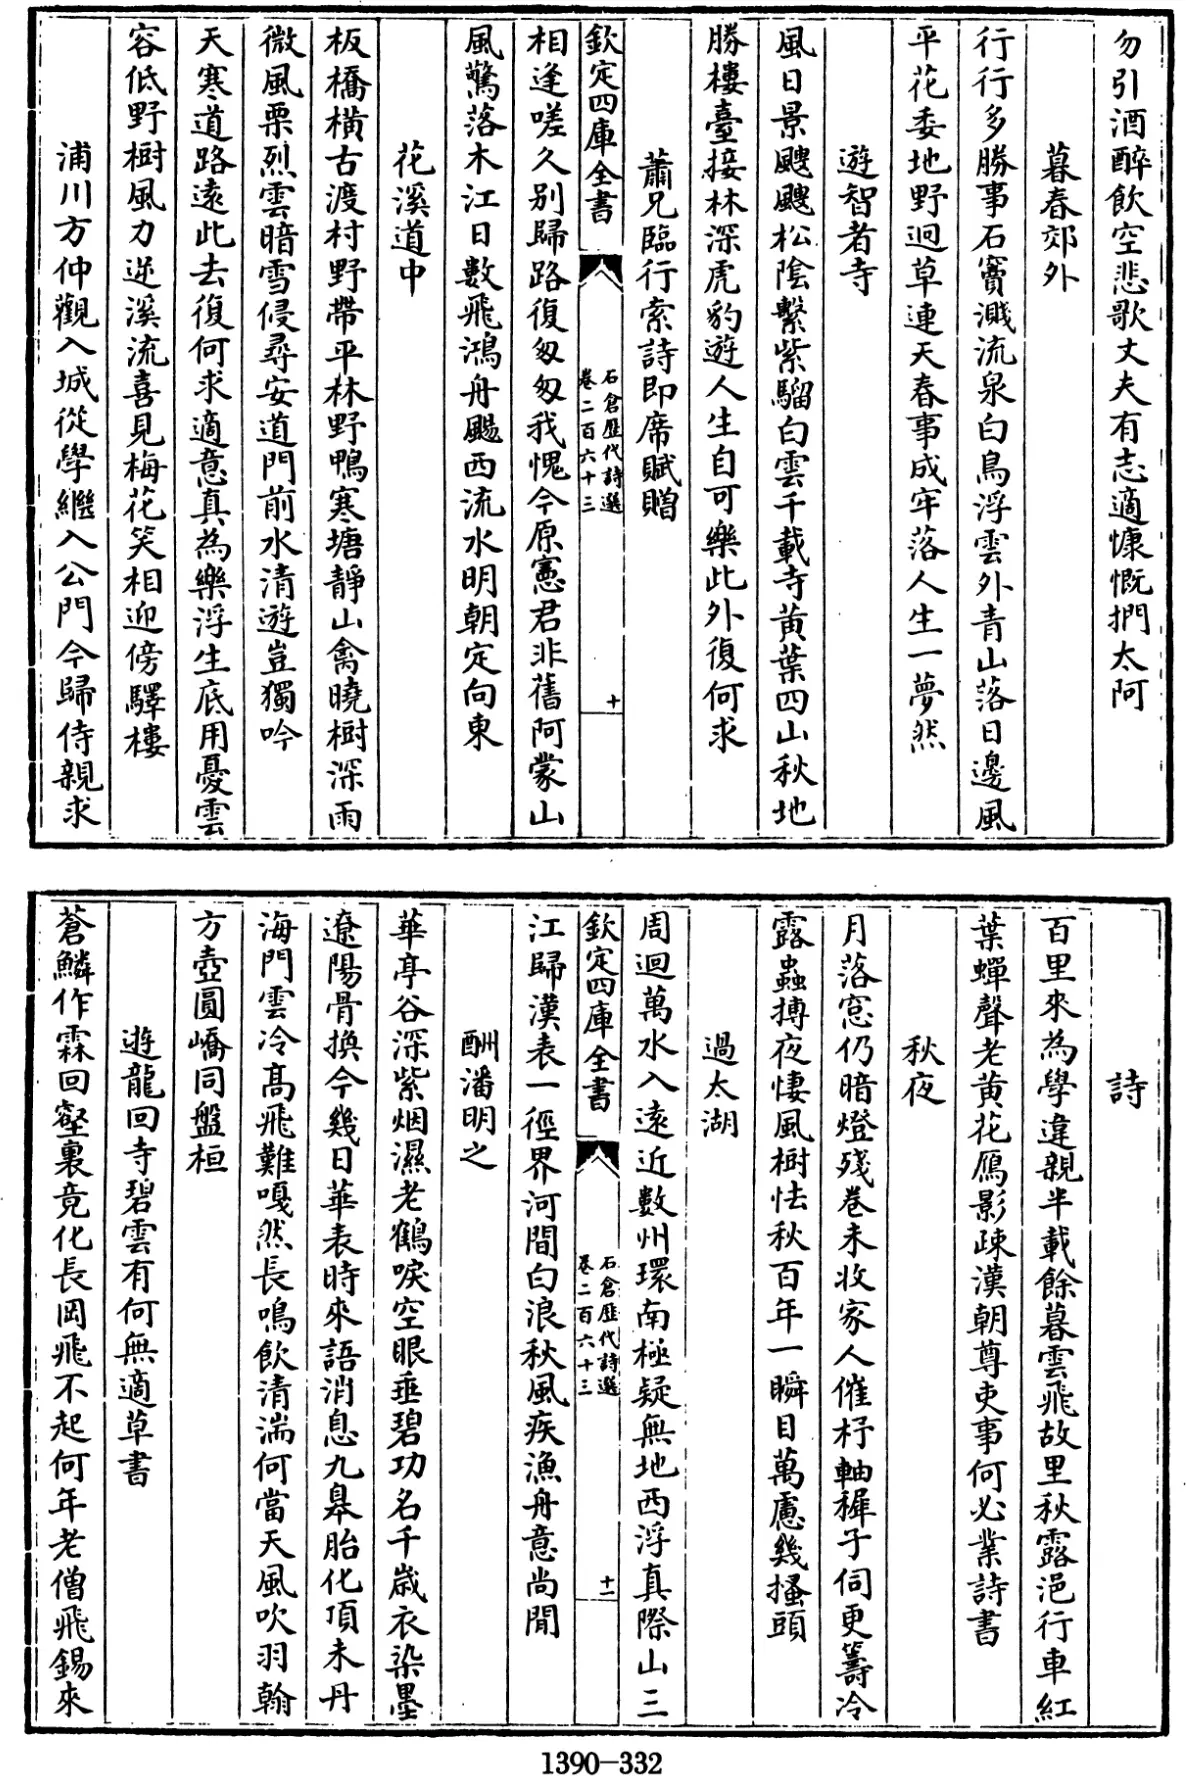 勿引酒醉飲空悲歌丈夫有志適慷慨捫太阿
暮春郊外
行行多勝事石竇濺流泉白鳥浮雲外青山落日邊風
平花委地野迥草連天春事成牢落人生一夢然
遊智者寺
風日景颼颼松陰繫紫騮白雲千載寺黃葉四山秋地
勝樓臺接林深虎豹遊人生自可樂此外復何求
蕭兄臨行索詩即席賦贈
欽定四庫全書
石倉歷代詩選
卷二百六十三
十
相逢嗟久別歸路復匆匆我愧今原憲君非舊阿蒙山
風驚落木江日數飛鴻舟颺西流水明朝定向東
花溪道中
板橋橫古渡村野帶平林野鴨寒塘靜山禽曉樹深雨
微風栗烈雲暗雪侵尋安道門前水清遊豈獨吟
天寒道路遠此去復何求適意真為樂浮生底用憂雲
容低野樹風力逆溪流喜見梅花笑相迎傍驛樓
浦川方仲觀入城從學繼入公門今歸侍親求
詩
百里來為學違親半載餘暮雲飛故里秋露浥行車紅
葉蟬聲老黃花鴈影疎漢朝尊吏事何必業詩書
秋夜
月落窓仍暗燈殘卷未收家人催杼軸稺子伺更籌冷
露蟲摶夜悽風樹怯秋百年一瞬目萬慮幾搔頭
過太湖
周迴萬水入遠近數州環南極疑無地西浮真際山三
欽定四庫全書
石倉歷代詩選
卷二百六十三
十一
江歸漢表一徑界河間白浪秋風疾漁舟意尚閒
酬潘明之
華亭谷深紫烟濕老鶴唳空眼垂碧功名千歲衣染墨
遼陽骨換今幾日華表時來語消息九皋胎化頂未丹
海門雲冷高飛難嘎然長鳴飲清湍何當天風吹羽翰
方壺圓嶠同盤桓
遊龍回寺碧雲有何無適草書
蒼鱗作霖回壑裏竟化長岡飛不起何年老僧飛錫來
1390-332